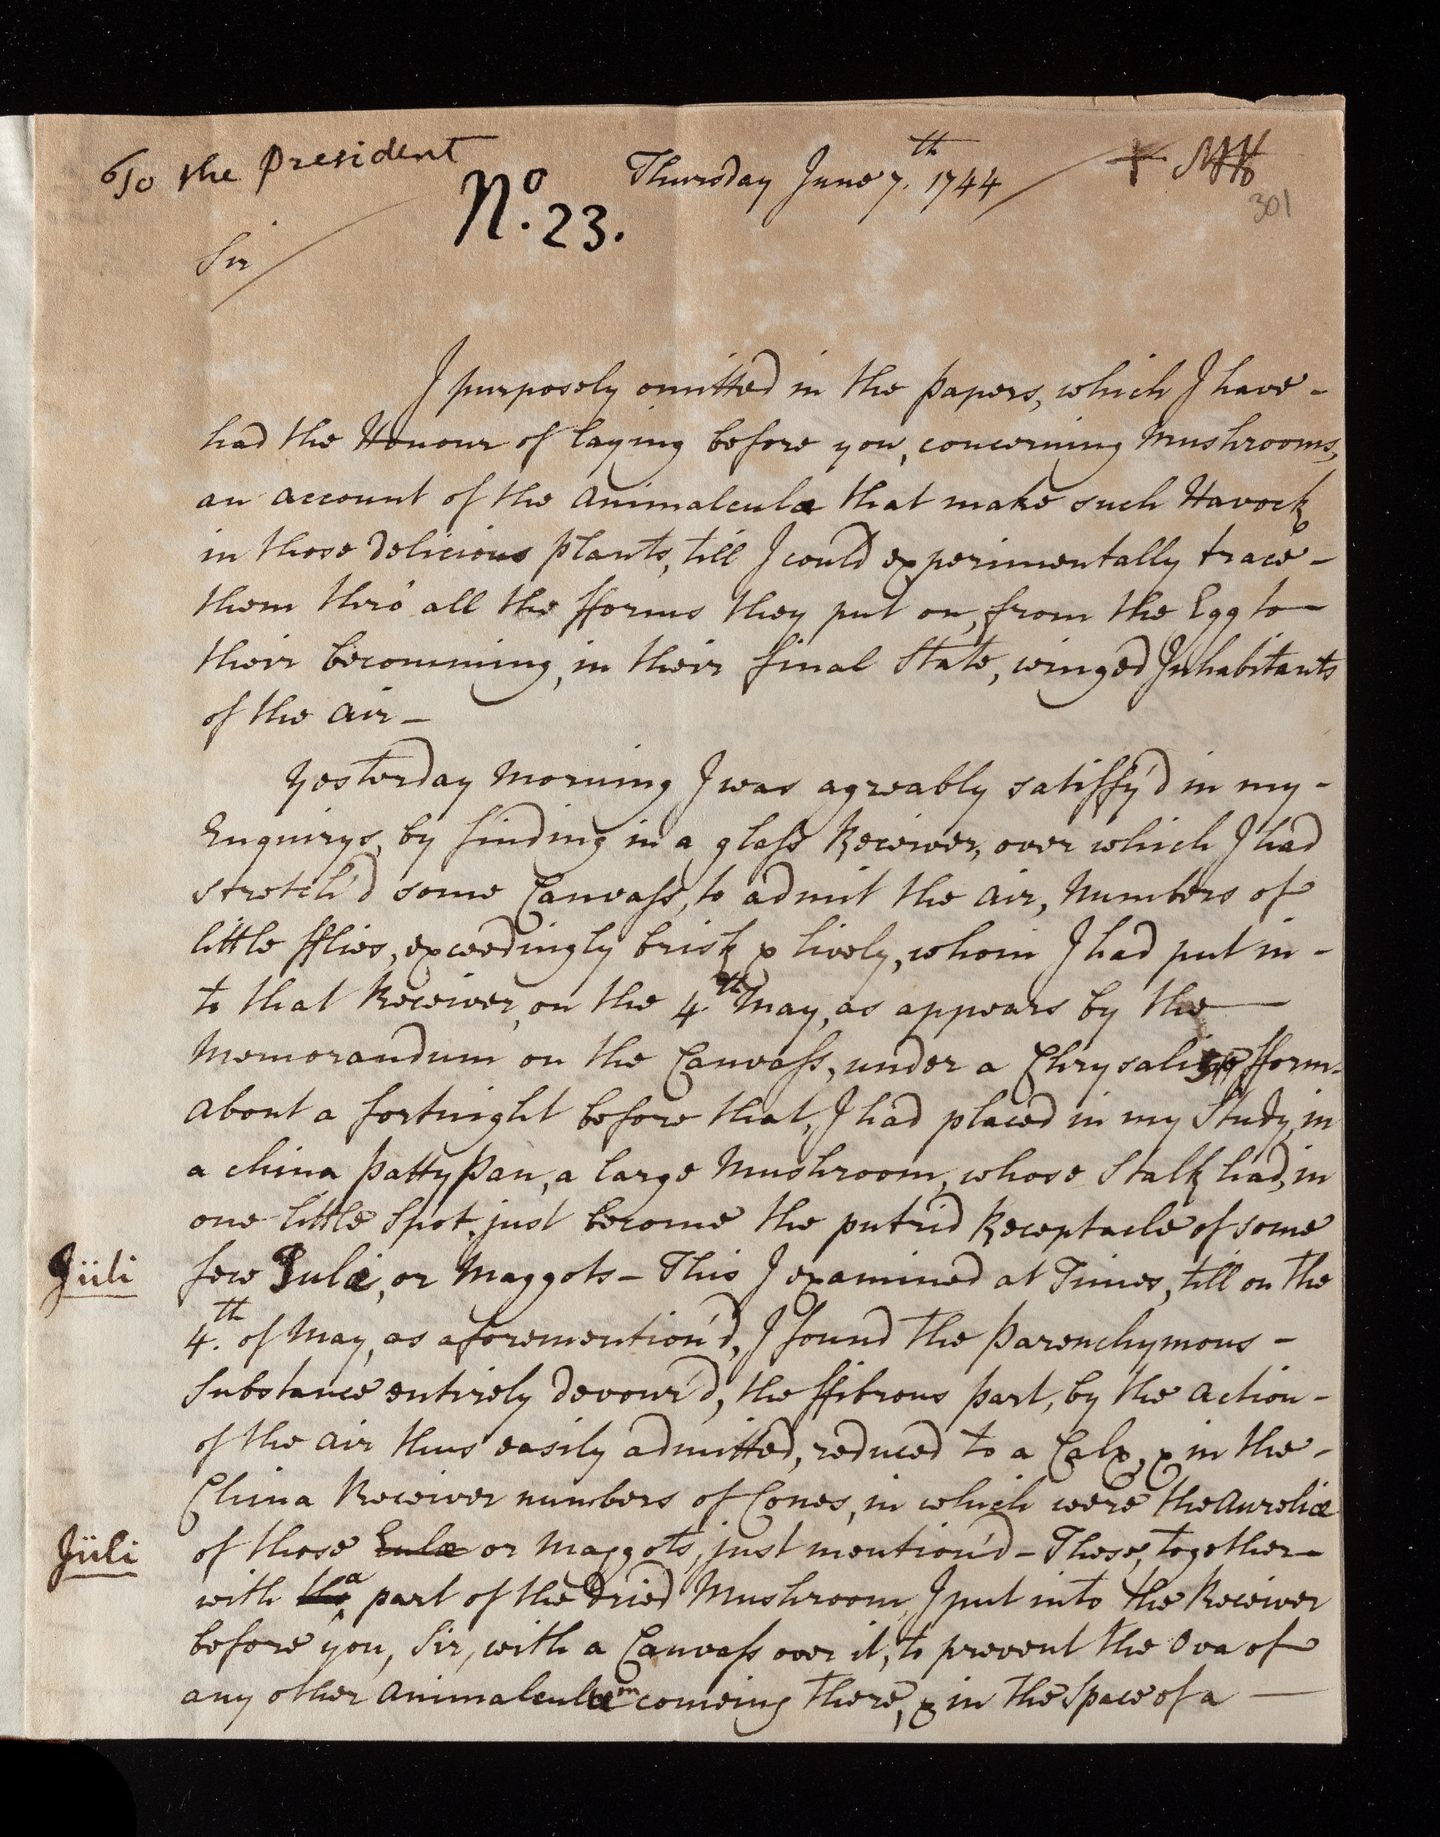 To the President
Thursday June 7.th 1744
No. 23.
301
Sir
I purposely omitted in the Papers, which I have
had the Honour of laying before you, concerning Mushrooms,
an account of the Animalculæ that make such Havock
in those delicious Plants, till I could experimentally trace
them thro' all the fforms they put on, from the Egg to
their becomming, in their final State, winged Inhabitants
of the Air –
Yesterday Morning I was agreably satisfy'd in my
Enquirys, by finding in a glass Receiver, over which I had
stretch'd some Canvass, to admit the Air, Numbers of
little fflies, exceedingly brisk & lively, whom I had put in
to that Receiver, on the 4th May, as appears by the
Memorandum on the Canvass, under a Chrysalis fform.
About a fortnight before that, I had placed in my Study, in
a China Patty Pan, a large Mushroom, whose Stalk had, in
one little Spot, just become the putrid Receptacle of some
Jüli
few Eulæ, or Maggots – This I examined at Times, till on the
4.th of May, as aforemention'd, I found the Parenchymous
Substance entirely devour'd, the ffibrous part, by the Action
of the Air thus easily admitted, reduced to a Calx, & in the
China Receiver numbers of Cones, in which were the Aureliæ
Jüli
of those Eulæ or Maggots, just mention'd – These, together
with the a part of the Dried Mushroom, I put into the Receiver
before you, Sir, with a Canvass over it, to prevent the Ova of
any other Animalculum comeing there, & in the Space of a